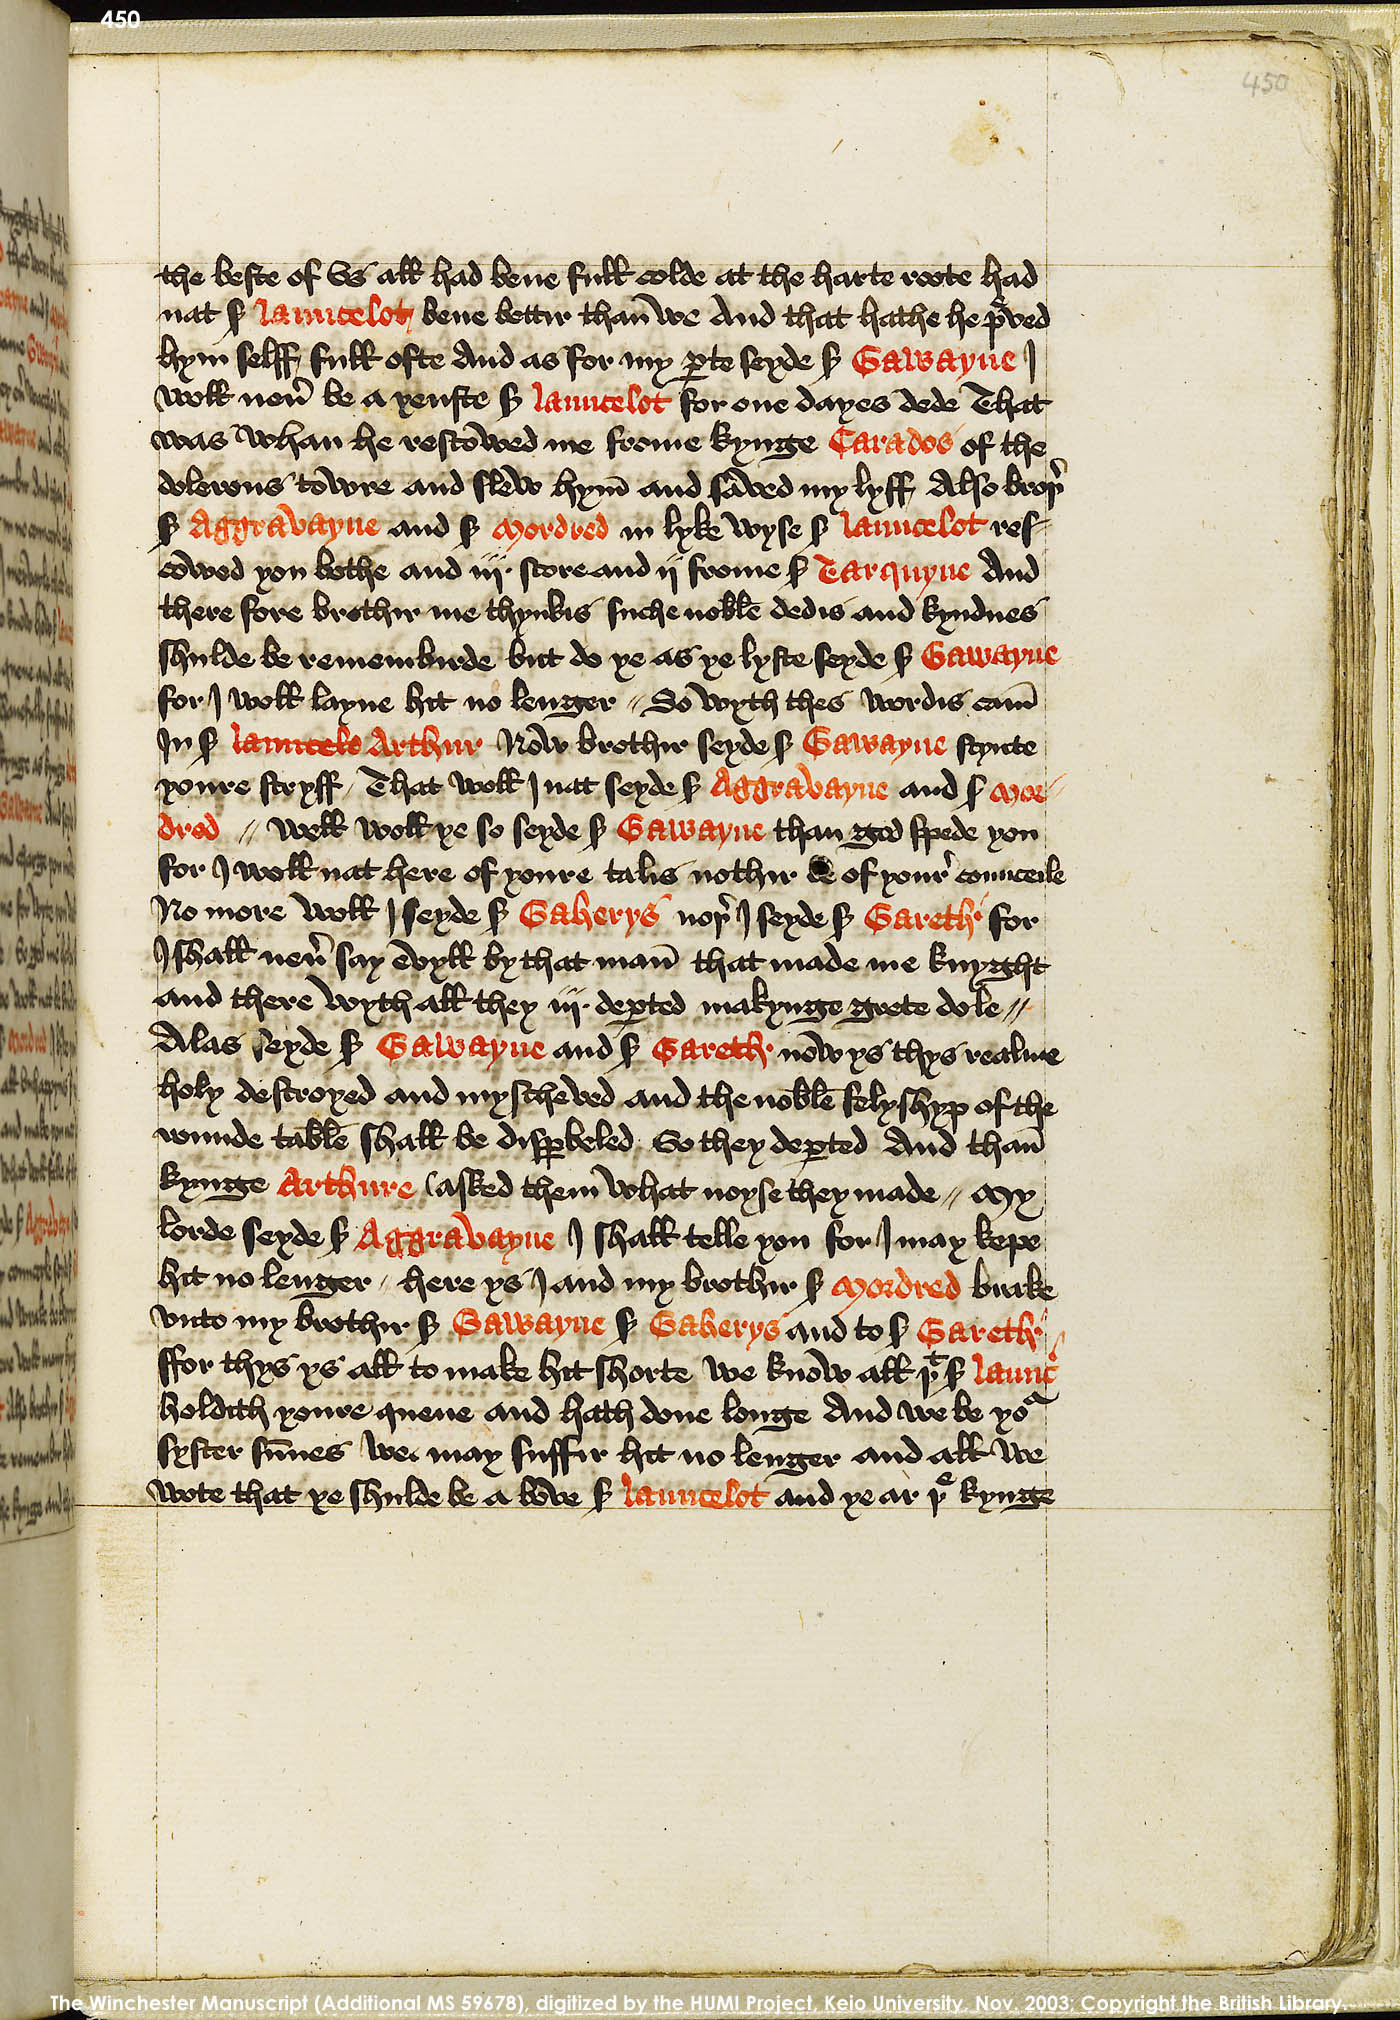 450
450
the beste of vs all had bene full colde at the harte roote had
nat sʳ launcelot bene bettir than̄ we And that hathe he pͬved
hym selff full ofte And as for my ꝑte seyde sʳ Gawayne I
woll neuʳ be a yenste sʳ launcelot for one dayes dede That
was whan he rescowed me frome kynge Carados of the
dolerous towre and slew hym̄ and saved my lyff Also broþʳ
sʳ Aggravayne and sʳ Mordred in lyke wyse sʳ launcelot res-
cowed you bothe and iij. score and ij frome sʳ Tarquyne And
there fore brothir me thynkis suche noble dedis and kyndnes
shulde be remembirde but do ye as ye lyste seyde sʳ Gawayne
for I woll layne hit no lenger // So wyth thes wordis cam̄
In sʳ launcelo Arthur Now brothir seyde sʳ Gawayne stynte
youre stryff / That woll I nat seyde sʳ Aggravayne and sʳ Mor//
dred // well woll ye so seyde sʳ Gawayne than god spede you
for I woll nat here of youre talis nothir be of yourʳ counceile
No more woll I seyde sʳ Gaherys noþʳ I seyde sʳ Gareth for
I shall neuʳ say evyll by that man̄ that made me knyght
and there wythall they iij. deꝑted makynge grete dole //
Alas seyde sʳ Gawayne and sʳ Gareth. now ys thys realme
holy destroyed and myscheved and the noble felyshyp of the
rounde table shall be disꝑbeled So they deꝑted And than̄
kynge Arthure asked them̄ what noyse they made // My
lorde seyde sʳ Aggravayne I shall telle you for I may kepe
hit no lenger // here ys I and my brothir sʳ Mordred brake
vnto my brothir sʳ Gawayne sʳ Gaherys and to sʳ Gareth //
ffor thys ys all to make hit shorte we know all þᵗ sʳ launc
holdith youre quene and hath done longe And we be yoʳ
syster sūnes we may suffir hit no lenger and all we
wote that ye shulde be a bove sʳ launcelot and ye ar þᵉ kynge
The Winchester Manuscript (Additional MS 59678), digitized by the HUMI Project, Keio University, Nov. 2003; Copyright the British Library.